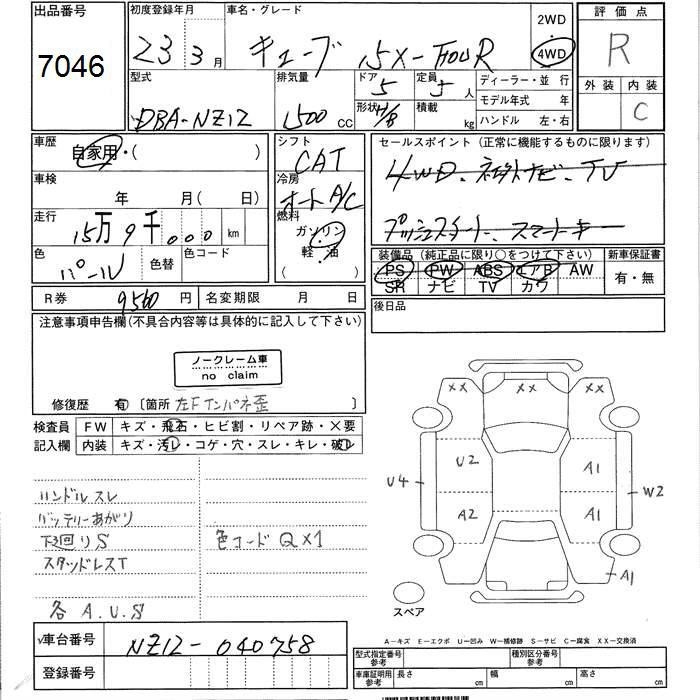 出品番号 初度登録年月 車名・グレード 2WD 評価点
7046 23 3月 キューブ 15X-FOUR 4WD R
型式 排気量 ドア 定員 ディーラー・並行 外装 内装
5 5人 モデル年式 年 C
DBA-NZ12 1500CC 形状 H/B 積載 kg ハンドル 左・右
車歴 シフト セールスポイント(正常に機能するものに限ります)
自家用・( ) CAT 4WD、社外ナビ、TV
車検 冷房
年 月( 日) オートA/C
走行 燃料 プッシュスタート、スマートキー
15万9千000km ガソリン
色 色替 色コード 軽・油 装備品(純正品に限り○をつけて下さい) 新車保証書
パール PS PW ABS エアB AW 有・無
SR ナビ TV カワ
R券 9560円 名変期限 月 日 後日品
注意事項申告欄(不具合内容等は具体的に記入して下さい)
ノークレーム車
no claim
XX XX XX
修復歴 有 〔箇所 左Fインパネ歪 〕
検査員 FW キズ・飛石・ヒビ割・リペア跡・×要
記入欄 内装 キズ・汚レ・コゲ・穴・スレ・キレ・破レ
U2 A1
U4 W2
ハンドルスレ
バッテリーあがり A2 A1
下廻りS 色コード Q×1
スタッドレスT
A1
各A.U.S スペア
車台番号 NZ12-040758 A-キズ E-エクボ U-凹み W-補修跡 S-サビ C-腐食 XX-交換済
型式指定番号 参考 種別区分番号 参考
登録番号 車庫証明用 参考 長さ cm 幅 cm 高さ cm